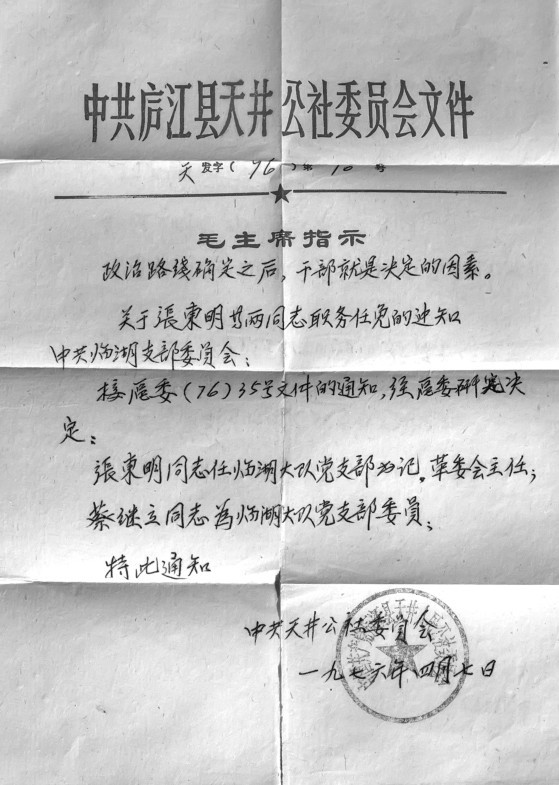 中共庐江县天井公社委员会文件
天发字(76)第10号
毛主席指示
政治路线确定之后,干部就是决定的因素。
关于張東明等两同志职务任免的通知
中共临湖支部委员会:
接區委(76)35号文件的通知,经區委研究决
定:
張東明同志任临湖大队党支部书记。革委会主任;
蔡继立同志為临湖大队党支部委员;
特此通知
中共天井公社委员会
一九七六年四月七日